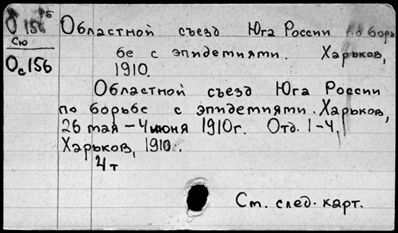 О 156
Сю
Ос156
Областной съезд Юга России по борь
бе с эпидемиями. Харьков,
1910.
Областной съезд Юга России
по борьбе с эпидемиями. Харьков,
26 мая – 4 июня 1910г. Отд. 1-4.
Харьков, 1910.
4т
См. след. карт.